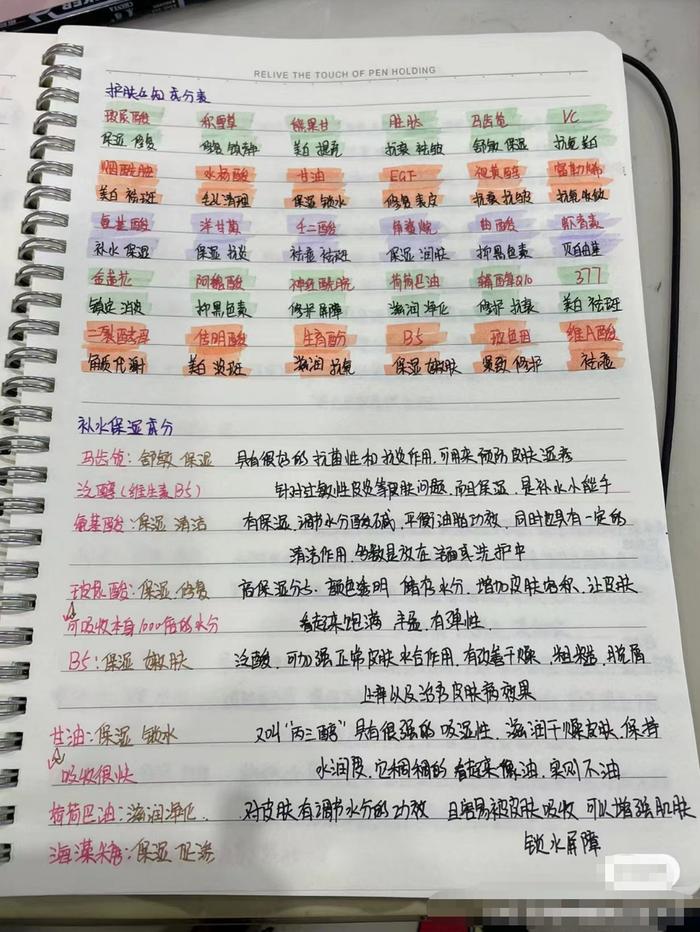 RELIVE THE TOUCH OF PEN HOLDING
护肤品知成分表
玻尿酸 积雪草 熊果甘 胜肽 马齿苋 VC
保湿 修复 修复 镇静 美白 提亮 抗衰 祛皱 舒敏 保湿 抗氧 美白
烟酰胺 水杨酸 甘油 EGF 视黄醇 富勒烯
美白 祛斑 毛孔清理 保湿 锁水 修复 表皮 抗衰 抗皱 抗氧
氨基酸 洋甘菊 壬二酸 角鲨烷 曲酸 虾青素
补水 保湿 保湿 抗炎 祛痘 祛斑 保湿 润肤 抑黑色素 灭自由基
金盏花 阿魏酸 神经酰胺 荷荷巴油 辅酶Q10 377
镇定 消皮 抑黑色素 修护屏障 滋润 净化 修护 抗衰 美白 祛斑
二裂酵母 传明酸 生育酚 B5 玻色因 维A酸
角质代谢 美白 淡斑 滋润 抗氧 保湿 嫩肤 紧致 修护 祛痘
补水保湿成分
马齿苋:舒敏 保湿 具有很好的抗菌性和抗炎作用,可用来预防皮肤湿疹
泛醇(维生素B5) 针对过敏性皮炎等肌肤问题,而且保湿,是补水小能手
氨基酸:保湿 清洁 有保湿、调节水分酸碱,平衡油脂功效,同时也具有一定的
清洁作用,多数是放在洁面具洗护中
玻尿酸:保湿 修复 高保湿分子、颜色透明 储存水分,增加皮肤容积,让皮肤
可吸收本身1000倍的水分 看起来饱满 丰盈,有弹性.
B5:保湿 嫩肤 泛酸,可加强正常皮肤水合作用,有改善干燥、粗糙,脱屑
止痒以及治疗皮肤病效果
甘油:保湿 锁水 又叫“丙三醇”具有很强的吸湿性,滋润干燥皮肤,保持
吸收很快 水润度,它稠稠的看起来像油,实则不油
荷荷巴油:滋润净化. 对皮肤有调节水分的功效 且容易被皮肤吸收 可以增强肌肤
海藻糖:保湿 锁水屏障